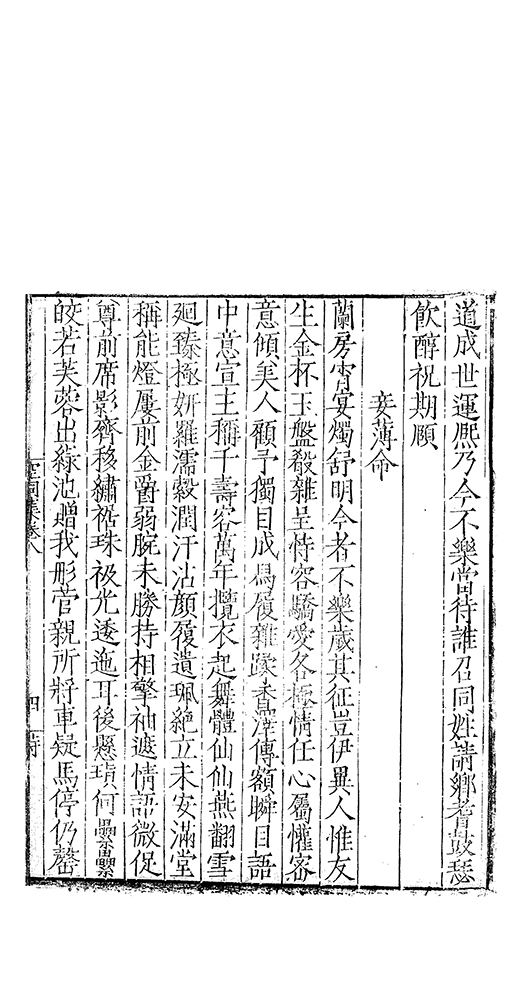 道成世運熈乃今不樂當待誰召同姓請鄉耆鼓瑟
飲醇祝期願
妾薄命
蘭房宵宴燭舒明今者不樂歲其征豈伊異人惟友
生金杯玉盤殽雜呈恃容驕愛各極情任心屬懽密
意傾美人顧予獨目成舄履雜蹂薌澤傳額瞬目語
中意宣主稱千壽客萬年攬衣起舞體仙仙燕翻雪
廻臻極妍羅濡縠潤汗沾顔履遺珮絶立未安滿堂
稱能燈屢前金罍弱腕未勝持相擎袖遮情語微促
尊前席影齊移繡裾珠衱光透迤耳後懸璸何纍纍
皎若芙蓉出綠池贈我彤菅親所將車疑馬停仍罄
空同集卷八
四
詩